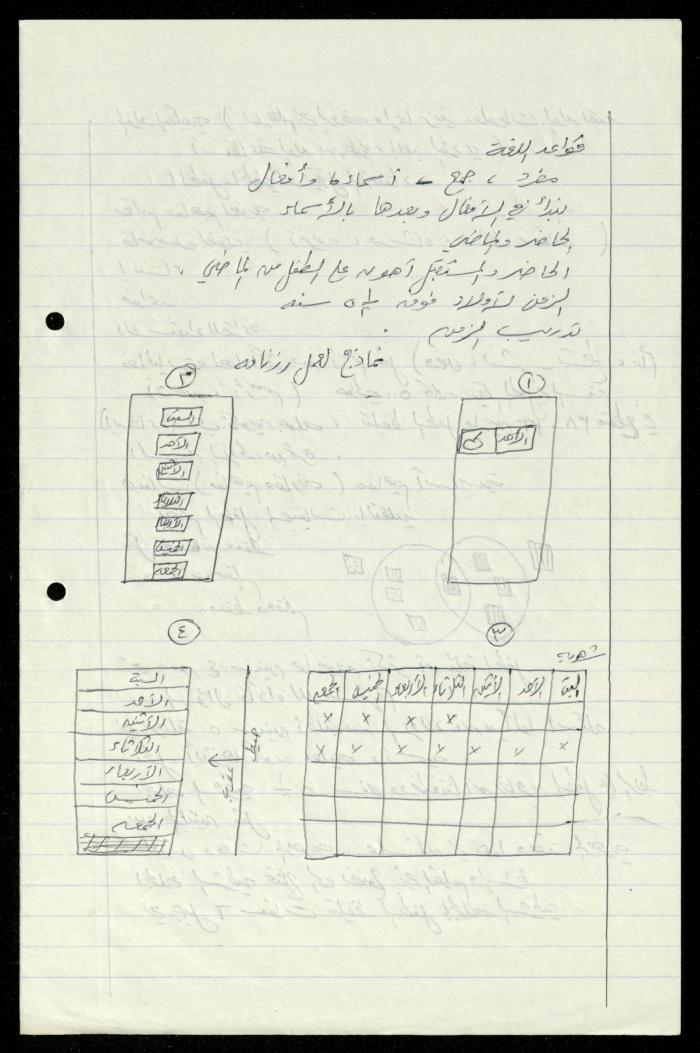 قواعد اللغة
مفرد ، جمع ← أسماء و أفعال
نبدأ في الأفعال وبعدها بالأسماء
الحاضر والماضي
الحاضر والمستقبل أهون على الطفل من الماضي .
الزمن لأولاد فوق ٥ ١/٢ سنه
تدريب الزمن .
نماذج لعمل رزنامه
١
الأحد
٢
السبت
الأحد
الأثنين
الثلاثاء
الأربعاء
الخميس
الجمعه
٣
شهريه
السبت الأحد الأثنين الثلاثاء الأربعاء الخميس الجمعه
x x x x
x x x x x x x
٤
السبت
الأحد
الأثنين
الثلاثاء
الأربعاء
الخميس
الجمعه
خيط